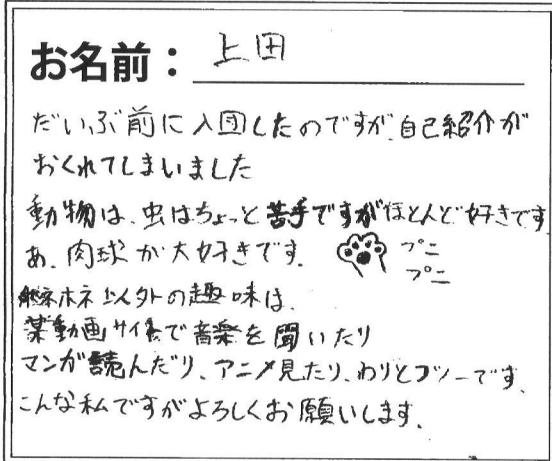 お名前：上田
だいぶ前に入団したのですが、自己紹介が
おくれてしまいました
動物は、虫はちょっと苦手ですがほとんど好きです
あ、肉球が大好きです。 プニ
プニ
ホネホネ以外の趣味は、
某動画サイトで音楽を聞いたり
マンガ読んだり、アニメ見たり、わりとフツーです。
こんな私ですがよろしくお願いします。